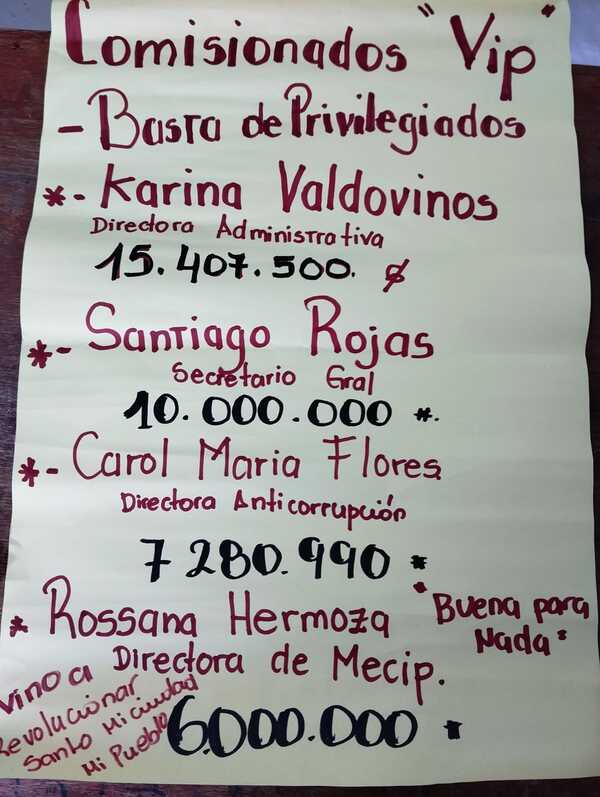 Comisionados "Vip"
- Basta de Privilegiados
*- Karina Valdovinos
Directora Administrativa
15.407.500.
*- Santiago Rojas
Secretario Gral
10.000.000 *.
*- Carol Maria Flores
Directora Anticorrupción
7 280.990 *
* Rossana Hermoza
"Buena para
Nada"
Directora de Mecip.
6.000.000 *
vino a
Revolucionar
Santo Mi ciudad
Mi Pueblo